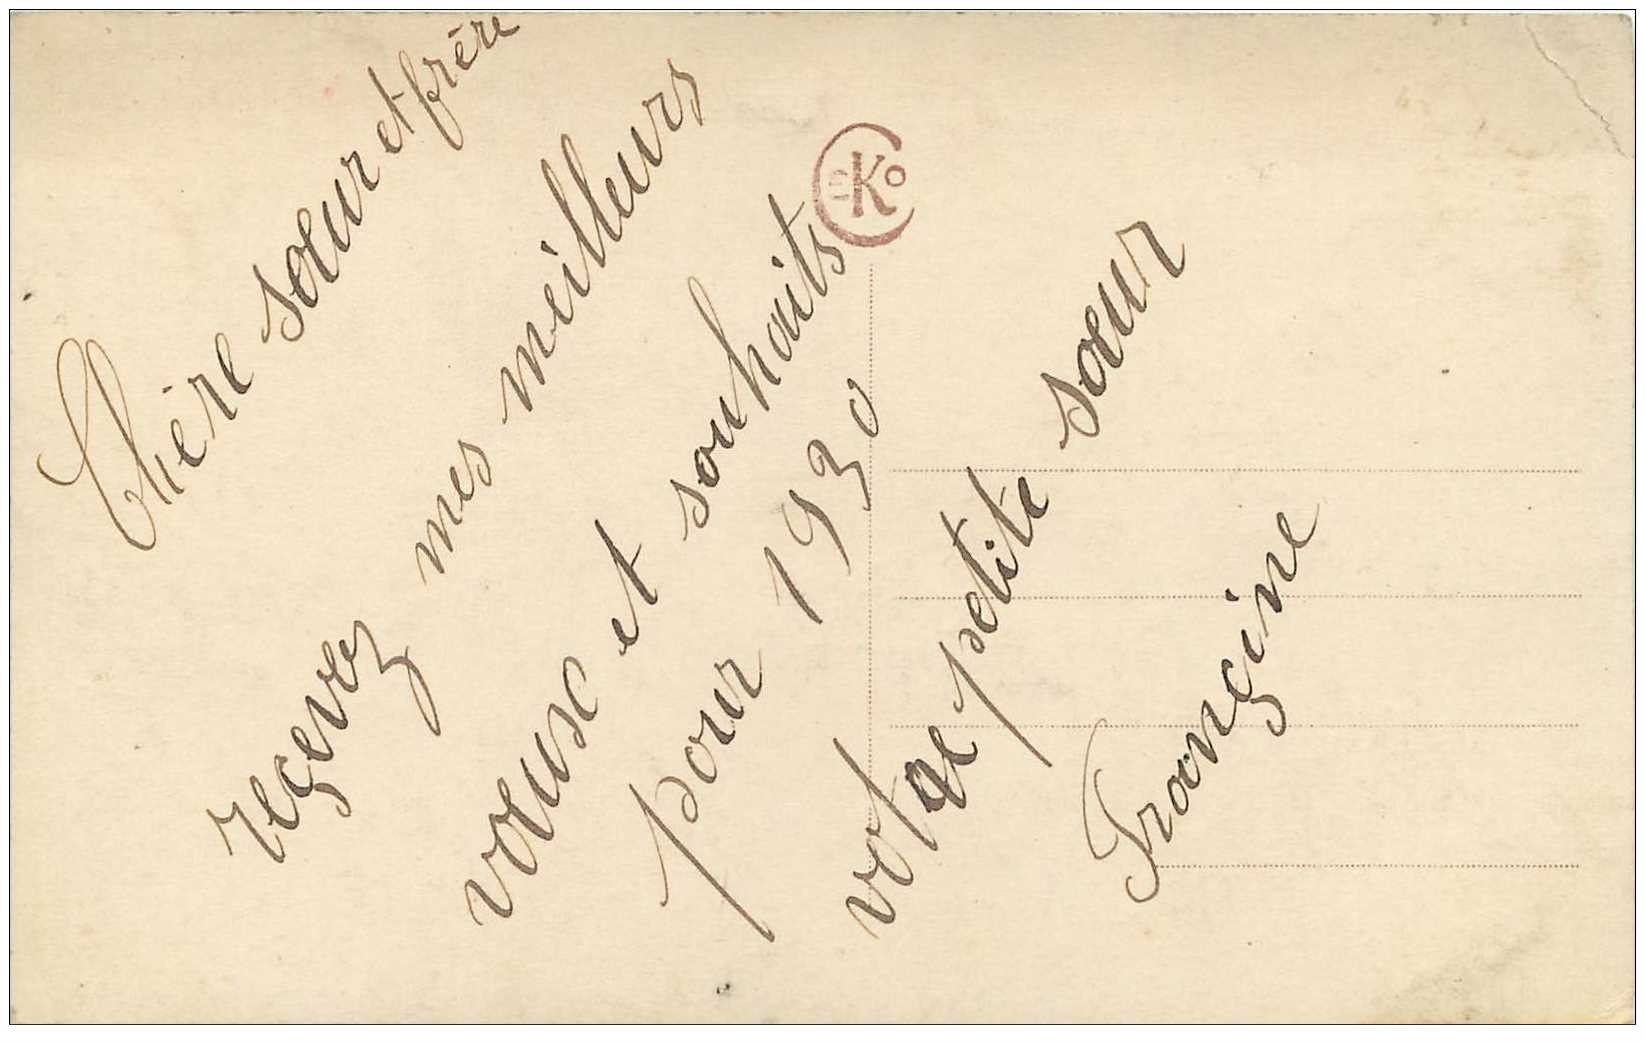 Chère sœur et frère
reçevez mes meilleurs
vœuse et souhaits
pour 1930
votre petite sœur
Françine